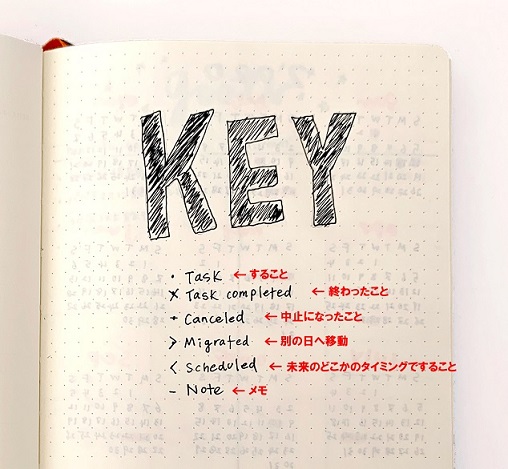 KEY
• Task ← すること
× Task completed ← 終わったこと
- Canceled ← 中止になったこと
> Migrated ← 別の日へ移動
< Scheduled ← 未来のどこかのタイミングですること
– Note ← メモ